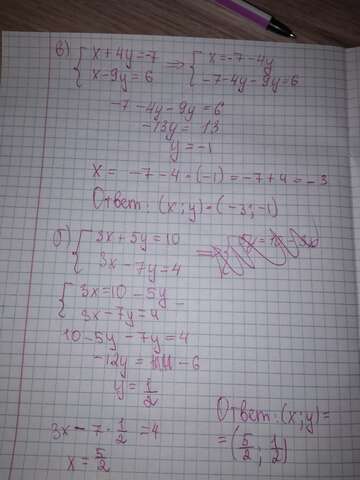 в) { x + 4y = -7 ⇒ { x = -7 - 4y
x - 9y = 6 -7 - 4y - 9y = 6
-7 - 4y - 9y = 6
-13y = 13
y = -1
x = -7 - 4 · (-1) = -7 + 4 = -3
Ответ: (x; y) = (-3; -1)
б) { 3x + 5y = 10 ⇒
3x - 7y = 4
{ 3x = 10 - 5y
3x - 7y = 4
10 - 5y - 7y = 4
-12y = -6
y = 1/2
3x - 7 · 1/2 = 4
x = 5/2
Ответ: (x; y) =
= (5/2; 1/2)